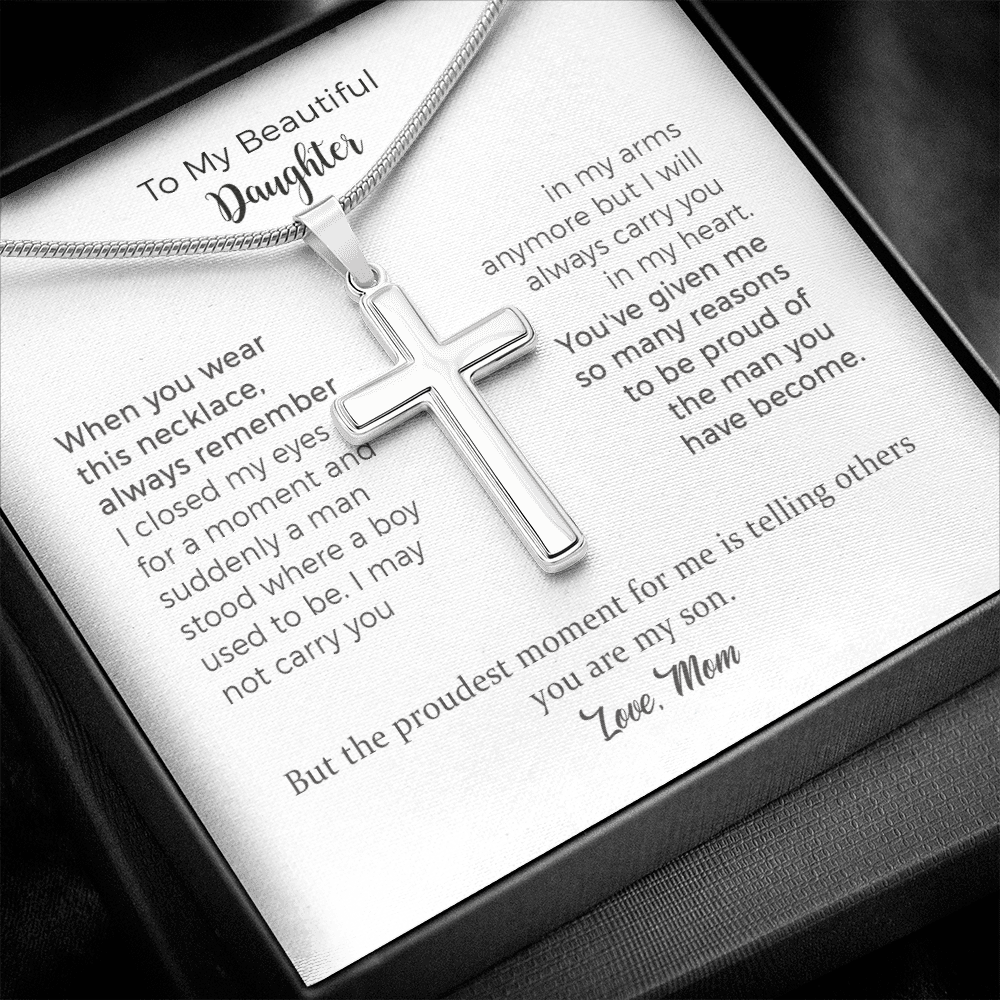 To My Beautiful
Daughter
When you wear
this necklace,
always remember
I closed my eyes
for a moment and
suddenly a man
stood where a boy
used to be. I may
not carry you
in my arms
anymore but I will
always carry you
in my heart.
You've given me
so many reasons
to be proud of
the man you
have become.
But the proudest moment for me is telling others
you are my son.
Love, Mom